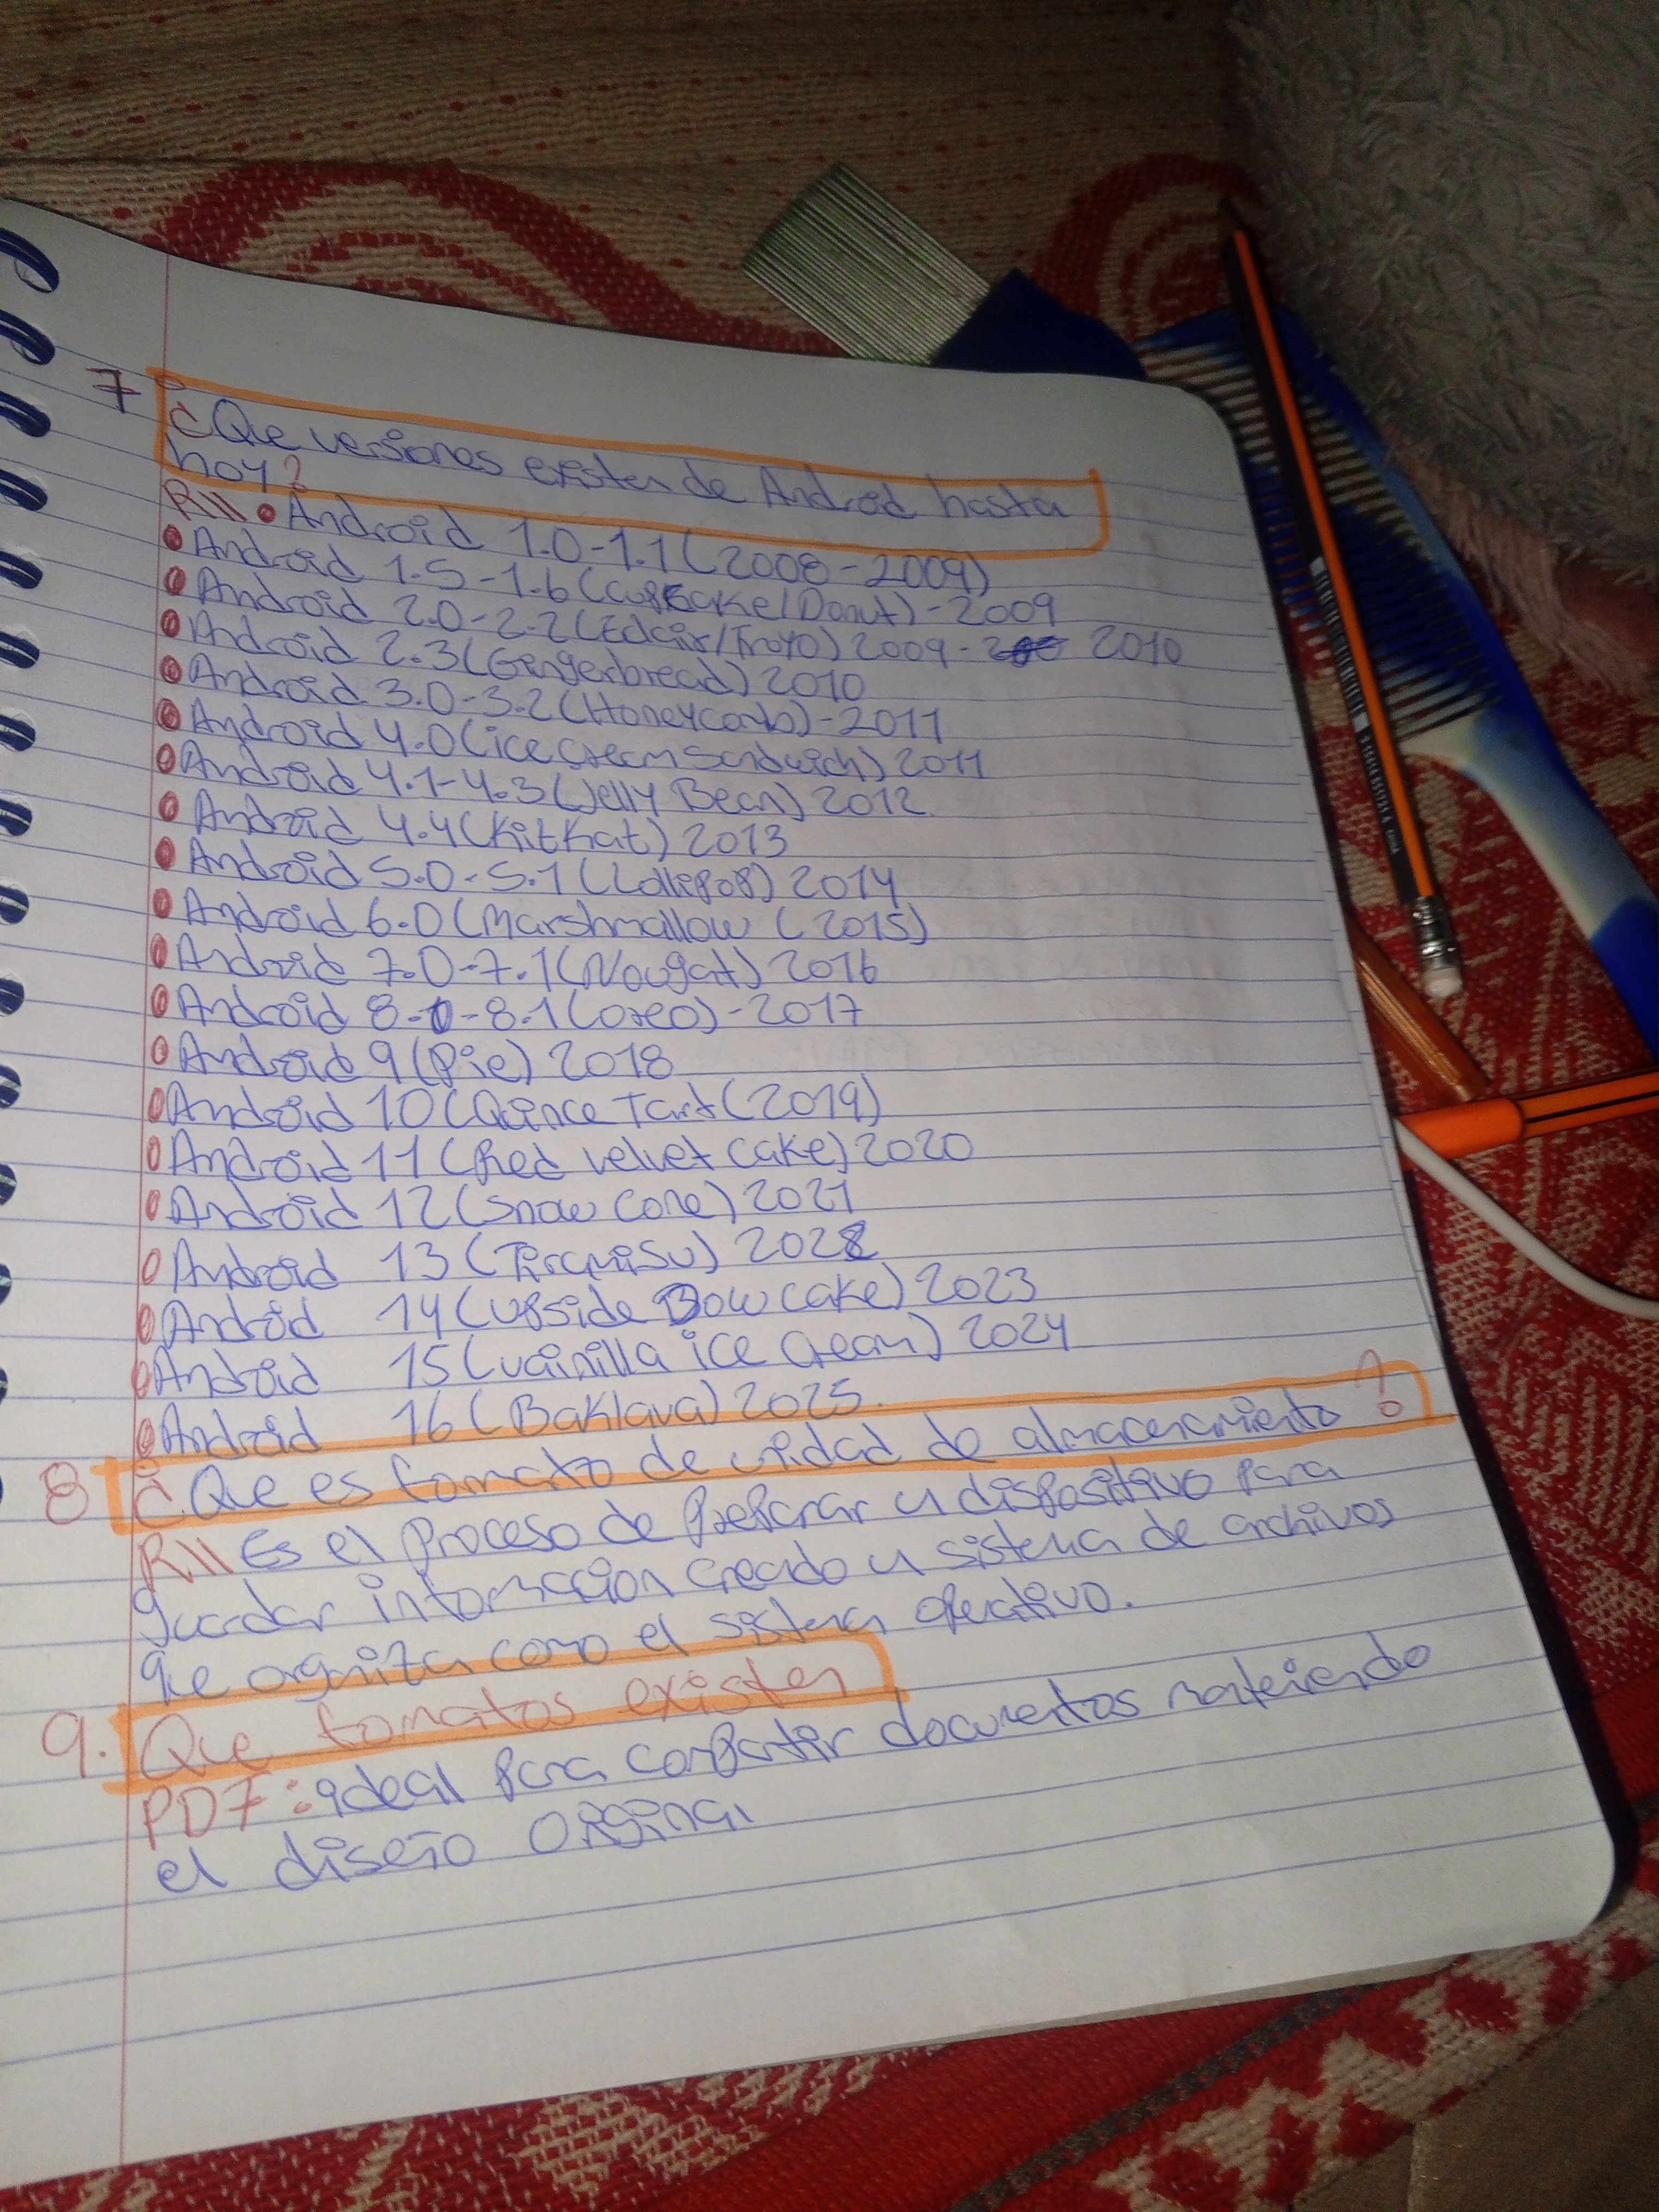 7 ¿Que versiones existen de Android hasta
hoy?
R// • Android 1.0-1.1 (2008-2009)
• Android 1.5-1.6 (Cupcake/Donut)-2009
• Android 2.0-2.2 (Eclair/Froyo) 2009- 2010
• Android 2.3 (Gingerbread) 2010
• Android 3.0-3.2 (Honeycomb)-2011
• Android 4.0 (ice cream sandwich) 2011
• Android 4.1-4.3 (Jelly Bean) 2012
• Android 4.4 (KitKat) 2013
• Android 5.0-5.1 (Lollipop) 2014
• Android 6.0 (Marshmallow (2015)
• Android 7.0-7.1 (Nougat) 2016
• Android 8.0-8.1 (oreo)-2017
• Android 9 (Pie) 2018
• Android 10 (Quince Tart (2019)
• Android 11 (Red velvet cake) 2020
• Android 12 (snow cone) 2021
• Android 13 (Tiramisu) 2022
• Android 14 (upside Dow cake) 2023
• Android 15 (vainilla ice cream) 2024
• Android 16 (Baklava) 2025.
8 ¿Que es formato de unidad de almacenamiento?
R// Es el proceso de preparar un dispositivo para
guardar informacion creado un sistema de archivos
que organiza como el sistema operativo.
9. Que formatos existen
PDF: ideal para compartir documentos manteniendo
el diseño original